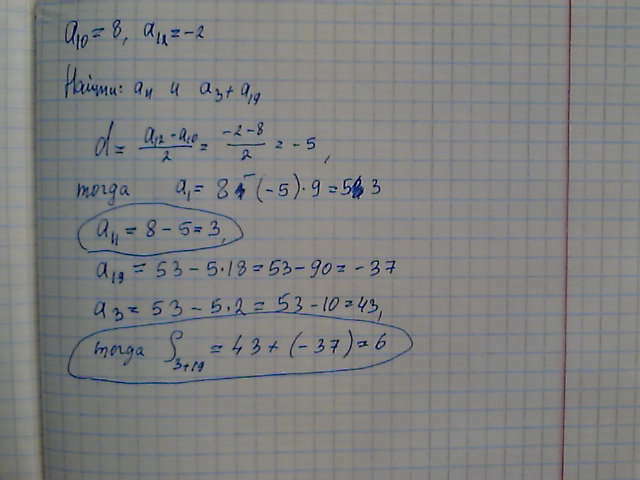 a₁₀ = 8, a₁₂ = -2
Найти: a₁₁ и a₃ + a₁₉
d = (a₁₂ - a₁₀)/2 = (-2 - 8)/2 = -5,
тогда a₁ = 8 - (-5)·9 = 53
a₁₁ = 8 - 5 = 3,
a₁₉ = 53 - 5·18 = 53 - 90 = -37
a₃ = 53 - 5·2 = 53 - 10 = 43,
тогда S₃₊₁₉ = 43 + (-37) = 6